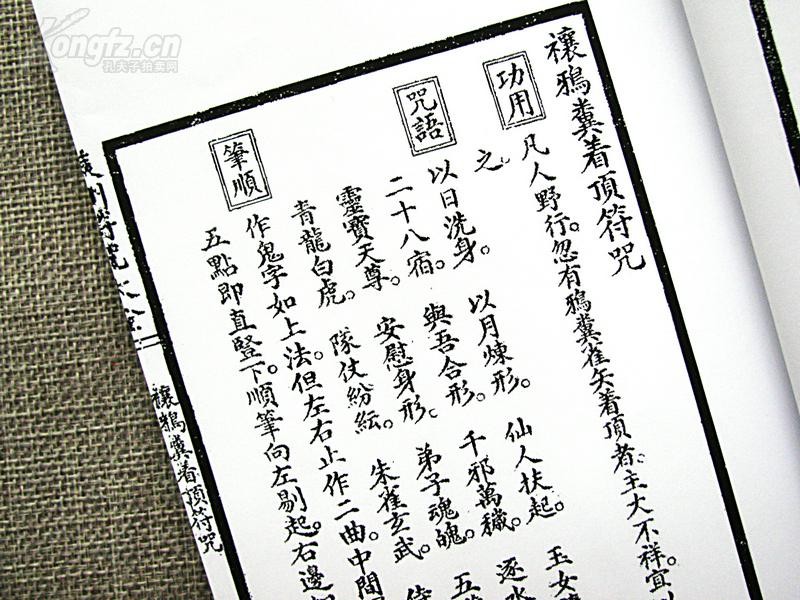 禳鴉糞着頂符咒
功用
凡人野行。忽有鴉糞雀矢着頂者。主大不祥宜以
之。
咒語
以日洗身。以月煉形。仙人扶起。玉女
二十八宿。與吾合形。千邪萬穢。逐水
靈寶天尊。安慰身形。弟子魂魄。五
青龍白虎。隊仗紛紜。朱雀玄武。侍
筆順
作鬼字如上法。但左右止作二曲中間
五點即直豎下。順筆向左剔起。右邊
符咒大全
禳鴉糞着頂符咒
kongfz.cn
孔夫子拍卖网